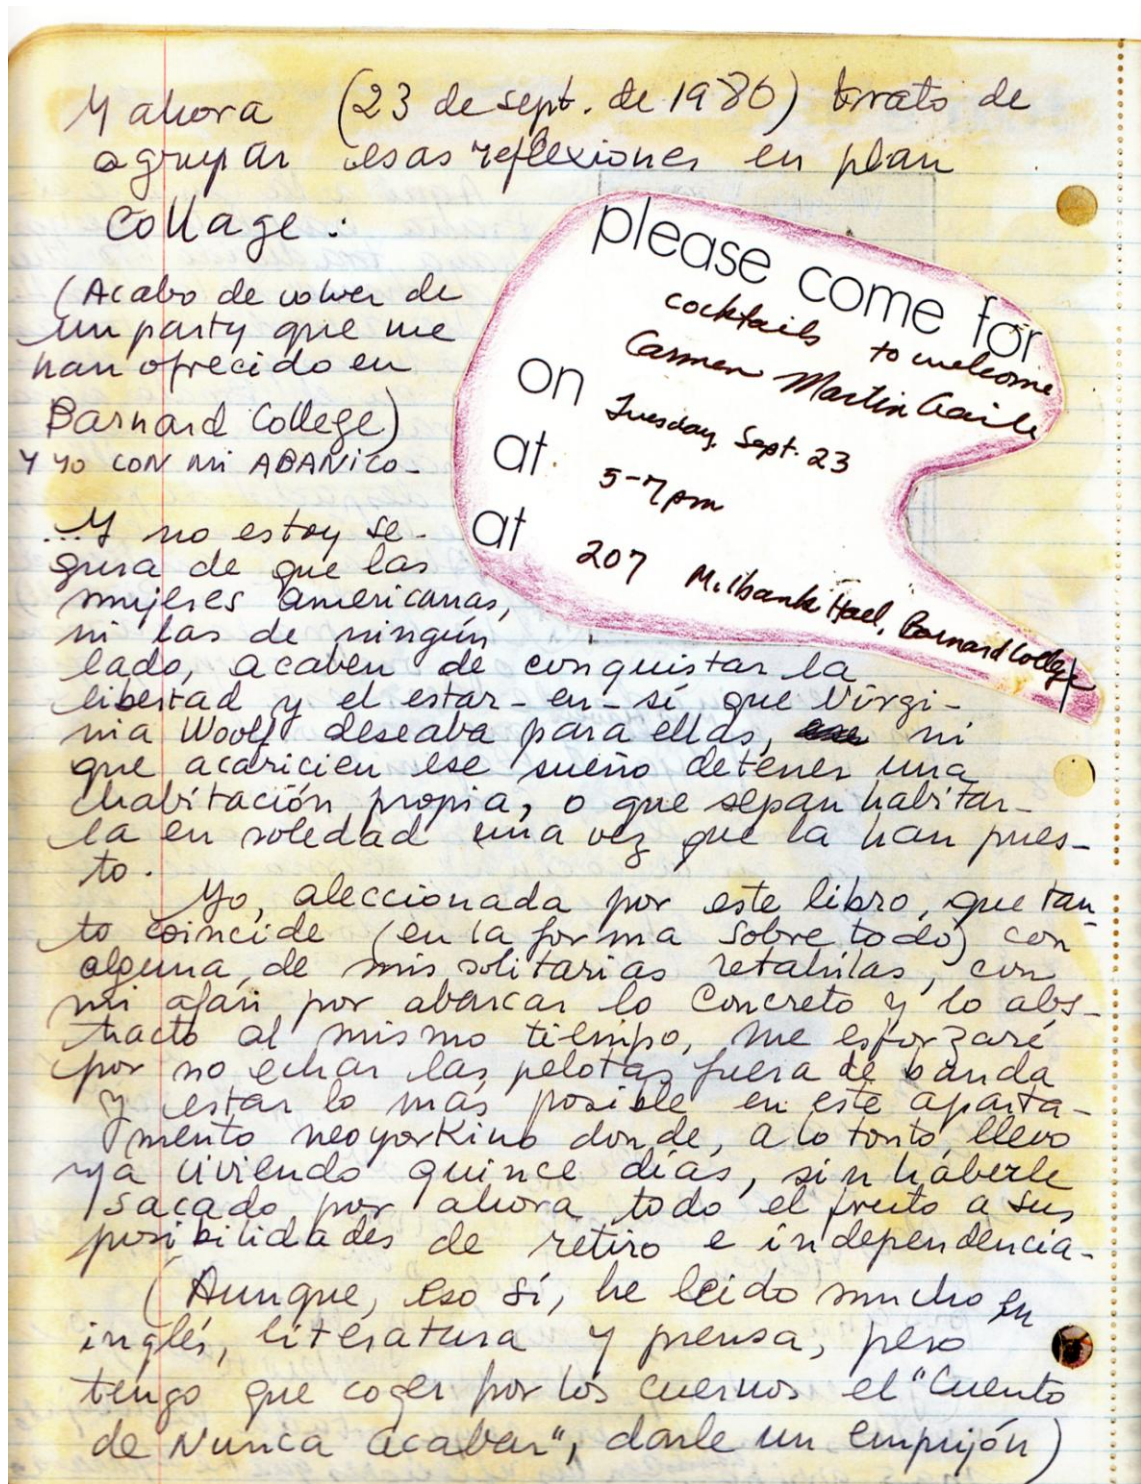 Y ahora (23 de sept. de 1980) trato de
agrupar esas reflexiones en plan
collage:
(Acabo de volver de
un party que me
han ofrecido en
Barnard College)
Y YO CON MI ABANICO-
please come for
cocktails to welcome
Carmen Martin Gaite
on Tuesday, Sept. 23
at 5-7 pm
at 207 Milbank Hall, Barnard College
...Y no estoy se-
gura de que las
mujeres americanas,
ni las de ningún
lado, acaben de conquistar la
libertad y el estar-en-sí que Virgi-
nia Woolf deseaba para ellas, ni
que acaricien ese sueño de tener una
habitación propia, o que sepan habitar-
la en soledad una vez que la han pues-
to.
Yo, aleccionada por este libro, que tan-
to coincide (en la forma sobre todo) con
alguna de mis solitarias retahílas, con
mi afán por abarcar lo concreto y lo abs-
tracto al mismo tiempo, me esforzaré
por no echar las pelotas fuera de banda
y estar lo más posible en este aparta-
mento neoyorkino donde, a lo tonto, llevo
ya viviendo quince días, sin haberle
sacado por ahora todo el fruto a sus
posibilidades de retiro e independencia.
(Aunque, eso sí, he leido mucho en
inglés, literatura y prensa, pero
tengo que coger por los cuernos el "Cuento
de Nunca acabar", darle un empujón)